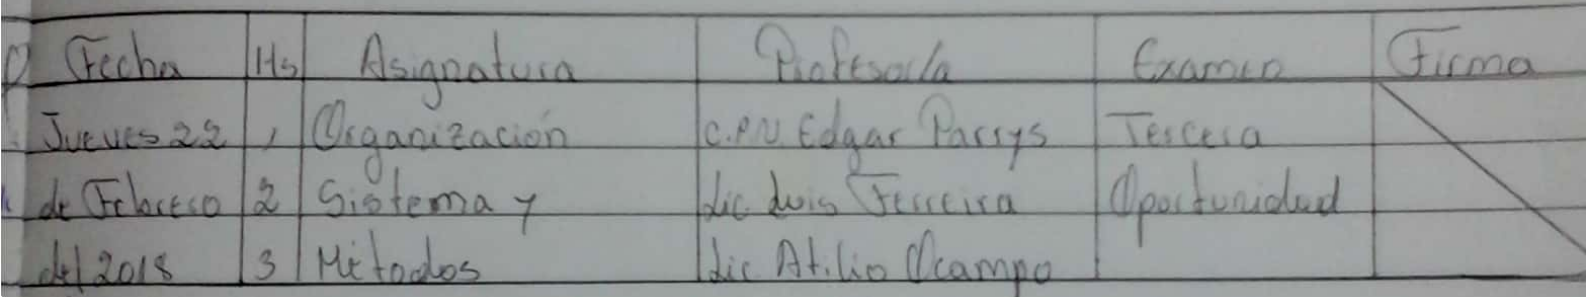 Fecha Hs Asignatura Profesor/a Examen Firma
Jueves 22 1 Organización C.P.N Edgar Parrys Tercera
de Febrero 2 Sistema y Lic Luis Ferreira Oportunidad
del 2018 3 Métodos Lic Atilio Ocampo